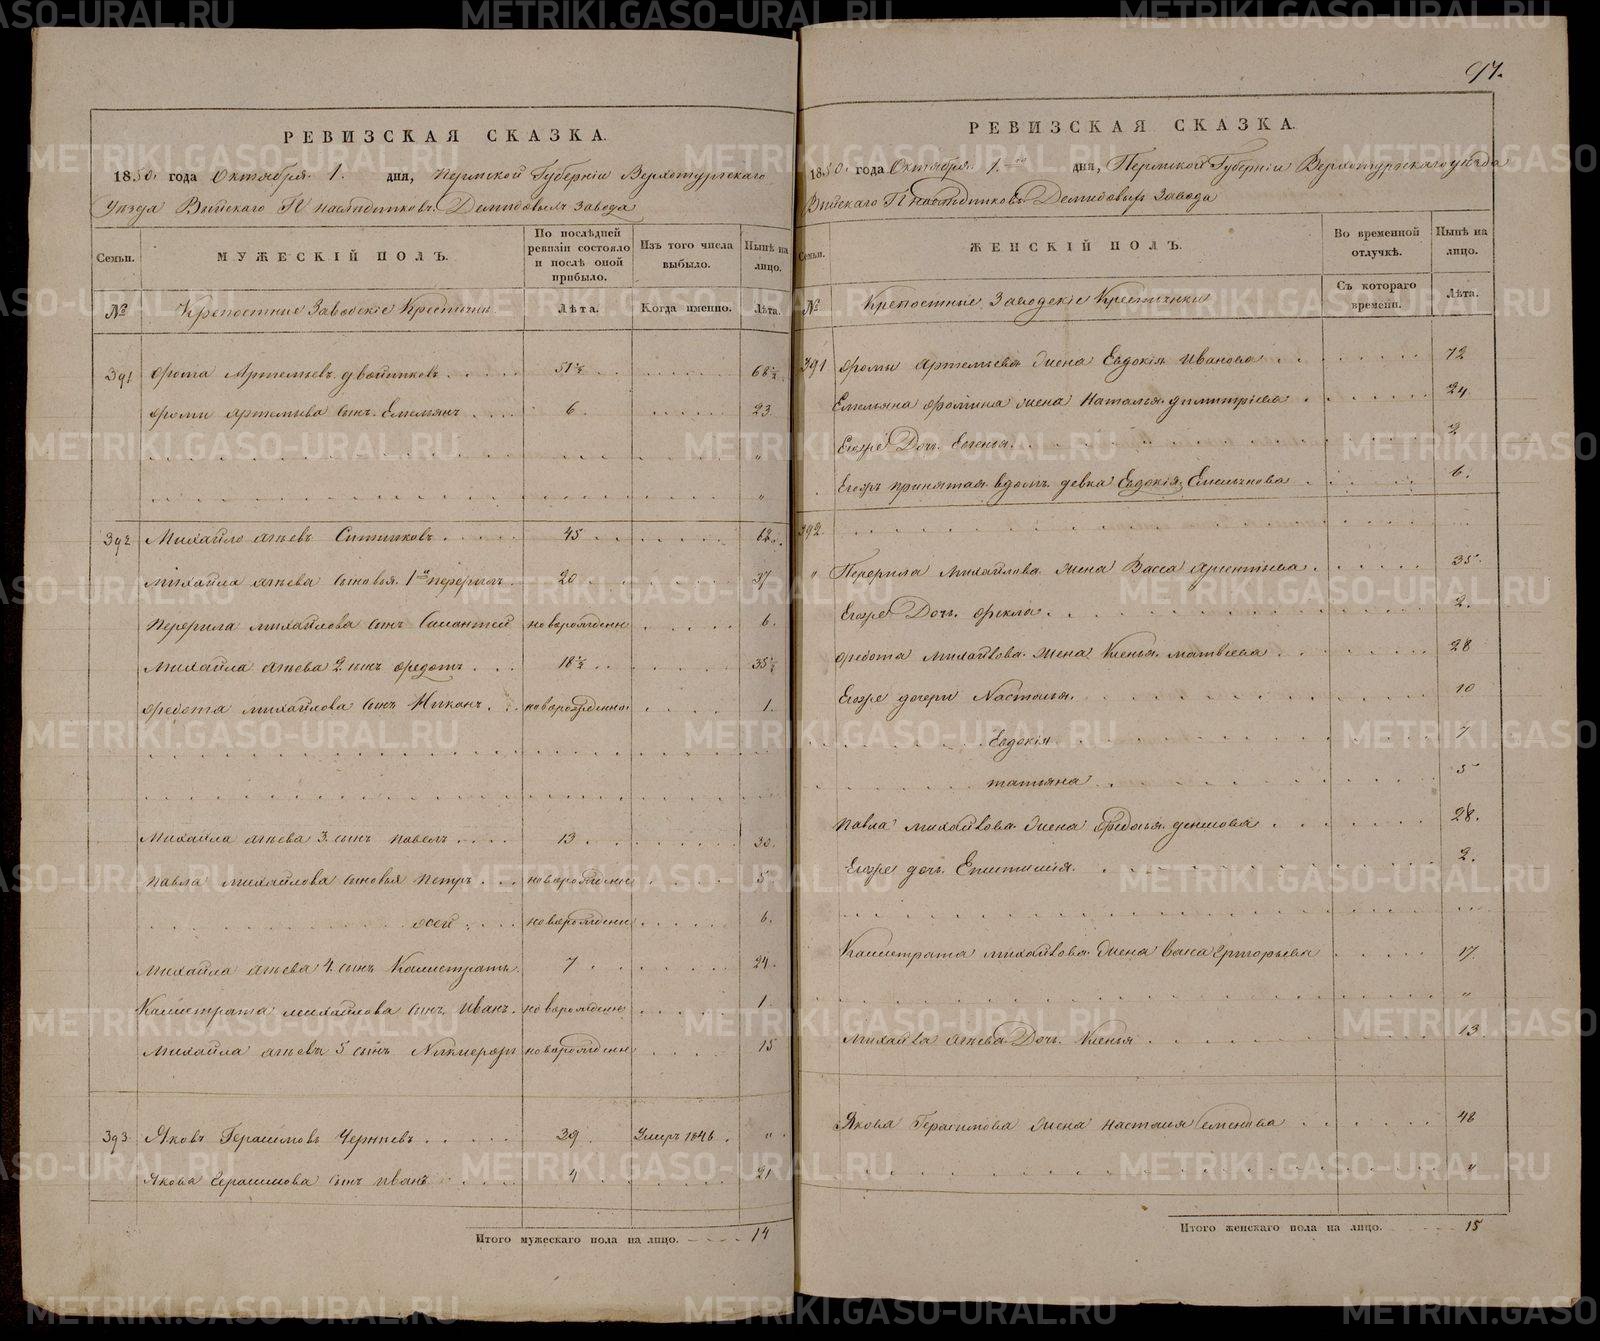 97.
РЕВИЗСКАЯ СКАЗКА.
1850 года Октября 1. дня, Пермской Губерніи Верхотурскаго
Уезда Выйскаго Г. Наследниковъ Демидовыхъ Завода
Семьи.
МУЖЕСКІЙ ПОЛЪ.
По послѣдней ревизіи состояло и послѣ оной прибыло.
Изъ того числа выбыло.
Нынѣ на лицо.
№
Крепостные Заводскіе Крестьяне
Лѣта.
Когда именно.
Лѣта.
391 Фома Артемьевъ Двойниковъ 51½ 68½
Фомы Артемьева сынъ Емельянъ 6 23
392 Михайло Агѣевъ Ситниковъ 45 62
Михайла Агѣева сыновья 1й Перфилъ 20 37
Перфила Михайлова сынъ новорожденн 6.
Михайла Агѣева 2 сынъ Федотъ 18½ 35½
Федота Михайлова сынъ Никонъ новорожденно 1.
Михайла Агѣева 3 сынъ Павелъ 13 30.
Павла Михайлова сыновья Петръ новорожденне 5
новорожденн 6.
Михайла Агѣева 4 сынъ Калистратъ 7 24.
Калистрата Михайлова сынъ Иванъ новорожденне 1.
Михайла Агѣева 5 сынъ Никифоръ новорожденн 15
393 Яковъ Герасимовъ 39 Умеръ 1846. "
Якова Герасимова сынъ Иванъ 4 21
Итого мужескаго пола на лицо. 14
РЕВИЗСКАЯ СКАЗКА.
1850 года Октября 1 го дня, Пермской Губерніи Верхотурскаго уѣзда
Выйскаго Г. Наследниковъ Демидовыхъ Завода
Семьи.
ЖЕНСКІЙ ПОЛЪ.
Во временной отлучкѣ.
Нынѣ на лицо.
№
Крепостные Заводскіе Крестьянки
Съ котораго времени.
Лѣта.
391 Фомы Артемьева жена Евдокія Иванова 72
Емельяна Фомина жена Наталья Димитріева 24
Егоже Дочь Евгенья 2
Егожъ принятая вдомъ девка Евдокія Емельянова 6.
392
" Перфила Михайлова жена Васса 35
Егоже Дочь Фекла 2.
Федота Михайлова жена Ксенья Матвеева 28
Егоже дочери Настасья 10
Евдокія 7
Татьяна 5
Павла Михайлова жена Федосья Денисова 28.
Егоже дочь Епистимія 2.
Калистрата Михайлова жена Григорьева 17
Михайла Агѣева Дочь Ксенья 13
Якова Герасимова жена Настасія Семенова 48
Итого женскаго пола на лицо. 15
METRIKI.GASO-URAL.RU